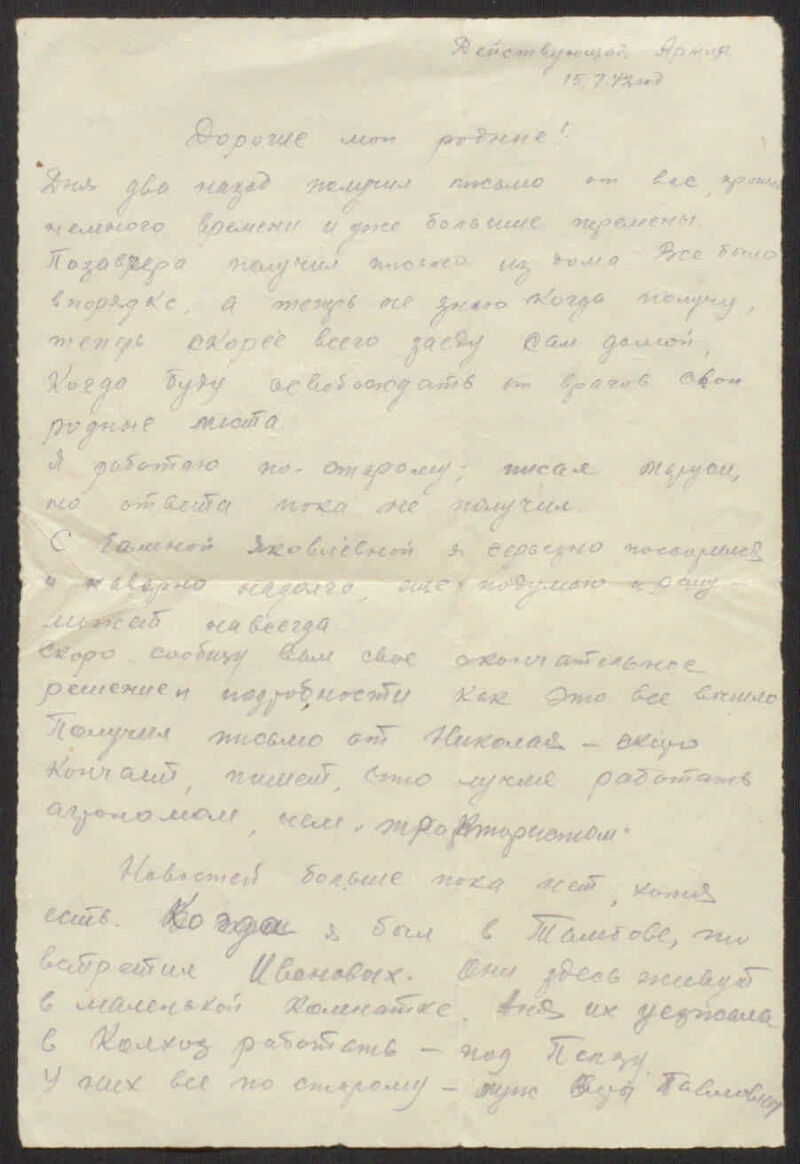 Действующая Армия
15.7.42 год
Дорогие мои родные!
Дня два назад получил письмо от вас, прошло
немного времени и уже большие перемены.
Позавчера получил письмо из дома Все было
впорядке, а теперь не знаю когда получу,
теперь скорее всего заеду сам домой,
Когда буду освобождать от врагов свои
родные места.
Я работаю по-старому, писал Маруси,
но ответа пока не получил.
С Галиной Яковлевной я серьезно поссорился
и наверно надолго, еще подумаю и
может навсегда.
Скоро сообщу вам свое окончательное
решение и подробности как это все вышло
Получил письмо от Николая – скоро
кончает, пишет, что лучше работать
агрономом, чем "трактористом"
Новостей больше пока нет, хотя
есть. Когда я был в Тамбове, то
встретил Ивановых. Они здесь живут
в маленькой комнатке. Аня их уезжала
в Колхоз работать – под Пензу.
У них все по старому – муж Павловны